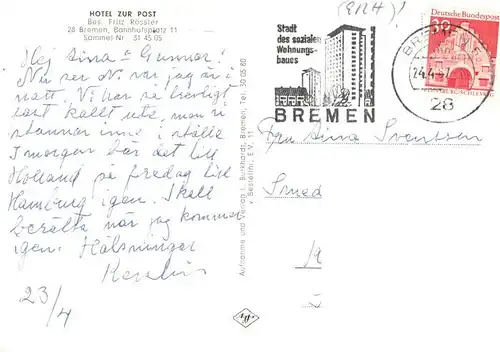 HOTEL ZUR POST
Bes. Fritz Rössler
28 Bremen, Bahnhofsplatz 11
Sammel-Nr. 31 45 05
Hej Aina o Gunnar!
Nu ser Ni var jag är i
natt. Vi har se herligt
fast kallt ute, men vi
stannar inne i stället
I morgon bär det till
Holland på fredag till
Hamburg igen. Skall
berätta när jag kommer
igen. Hälsningar
Kerstin
23/4
Aufnahme und Verlag J. Burkhardt, Bremen, Tel. 30 05 80
Bestellnr. E.V. 11
Stadt
des sozialen
Wohnungs-
baues
BREMEN
BREMEN
24.4
28
Deutsche Bundespost
Fru Aina Svensson
Smed